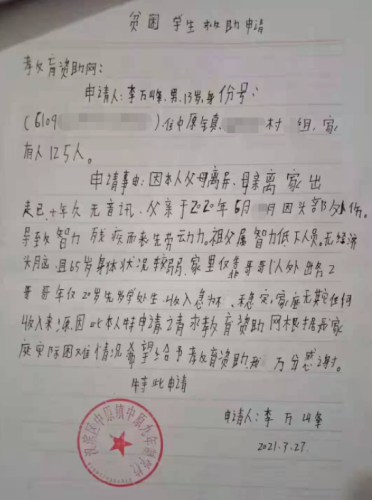 贫困学生和助申请
孝教育资助网:
申请人:李万峰、男、13岁、身份号:
(6109 ),住中原镇 村 组,家
有人125人。
申请事由:因本人父母离异、母亲离家出
走已十年欠无音讯、父亲于2020年6月 因头部外伤、
导致智力残疾而来先劳动力。祖父属智力低下人员。无经济
来源且65岁身体状况较弱、家里仅靠哥哥1人外出务工
哥哥年仅20岁先学处生收入急怀、未稳定、家庭无其它任何
收入来源。因此本人特申请之请求教育资助网根据我家
庭实际困难情况希望给予教育资助、我 万分感谢。
特此申请
申请人:李万峰
2021.7.27.
汉滨区中原镇中原九年制学校